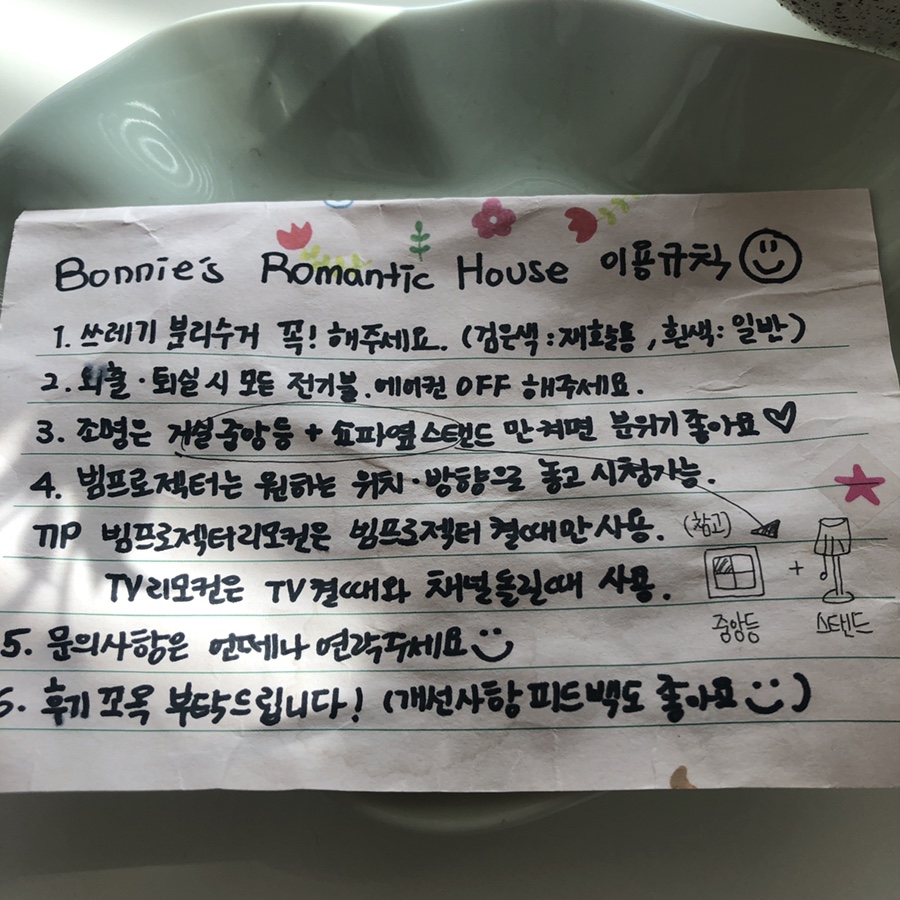 Bonnie's Romantic House 이용규칙
1. 쓰레기 분리수거 꼭! 해주세요. (검은색 : 재활용, 흰색 : 일반)
2. 외출 · 퇴실 시 모든 전기불. 에어컨 OFF 해주세요.
3. 조명은 거실중앙등 + 쇼파옆스탠드 만 켜면 분위기 좋아요♡
4. 빔프로젝터는 원하는 위치 · 방향으로 놓고 시청가능.
TIP 빔프로젝터리모컨은 빔프로젝터 켤때만 사용.
(참고)
TV리모컨은 TV켤때와 채널돌릴때 사용.
+
중앙등 스탠드
5. 문의사항은 언제나 연락주세요
6. 후기 꼬옥 부탁드립니다! (개선사항 피드백도 좋아요)